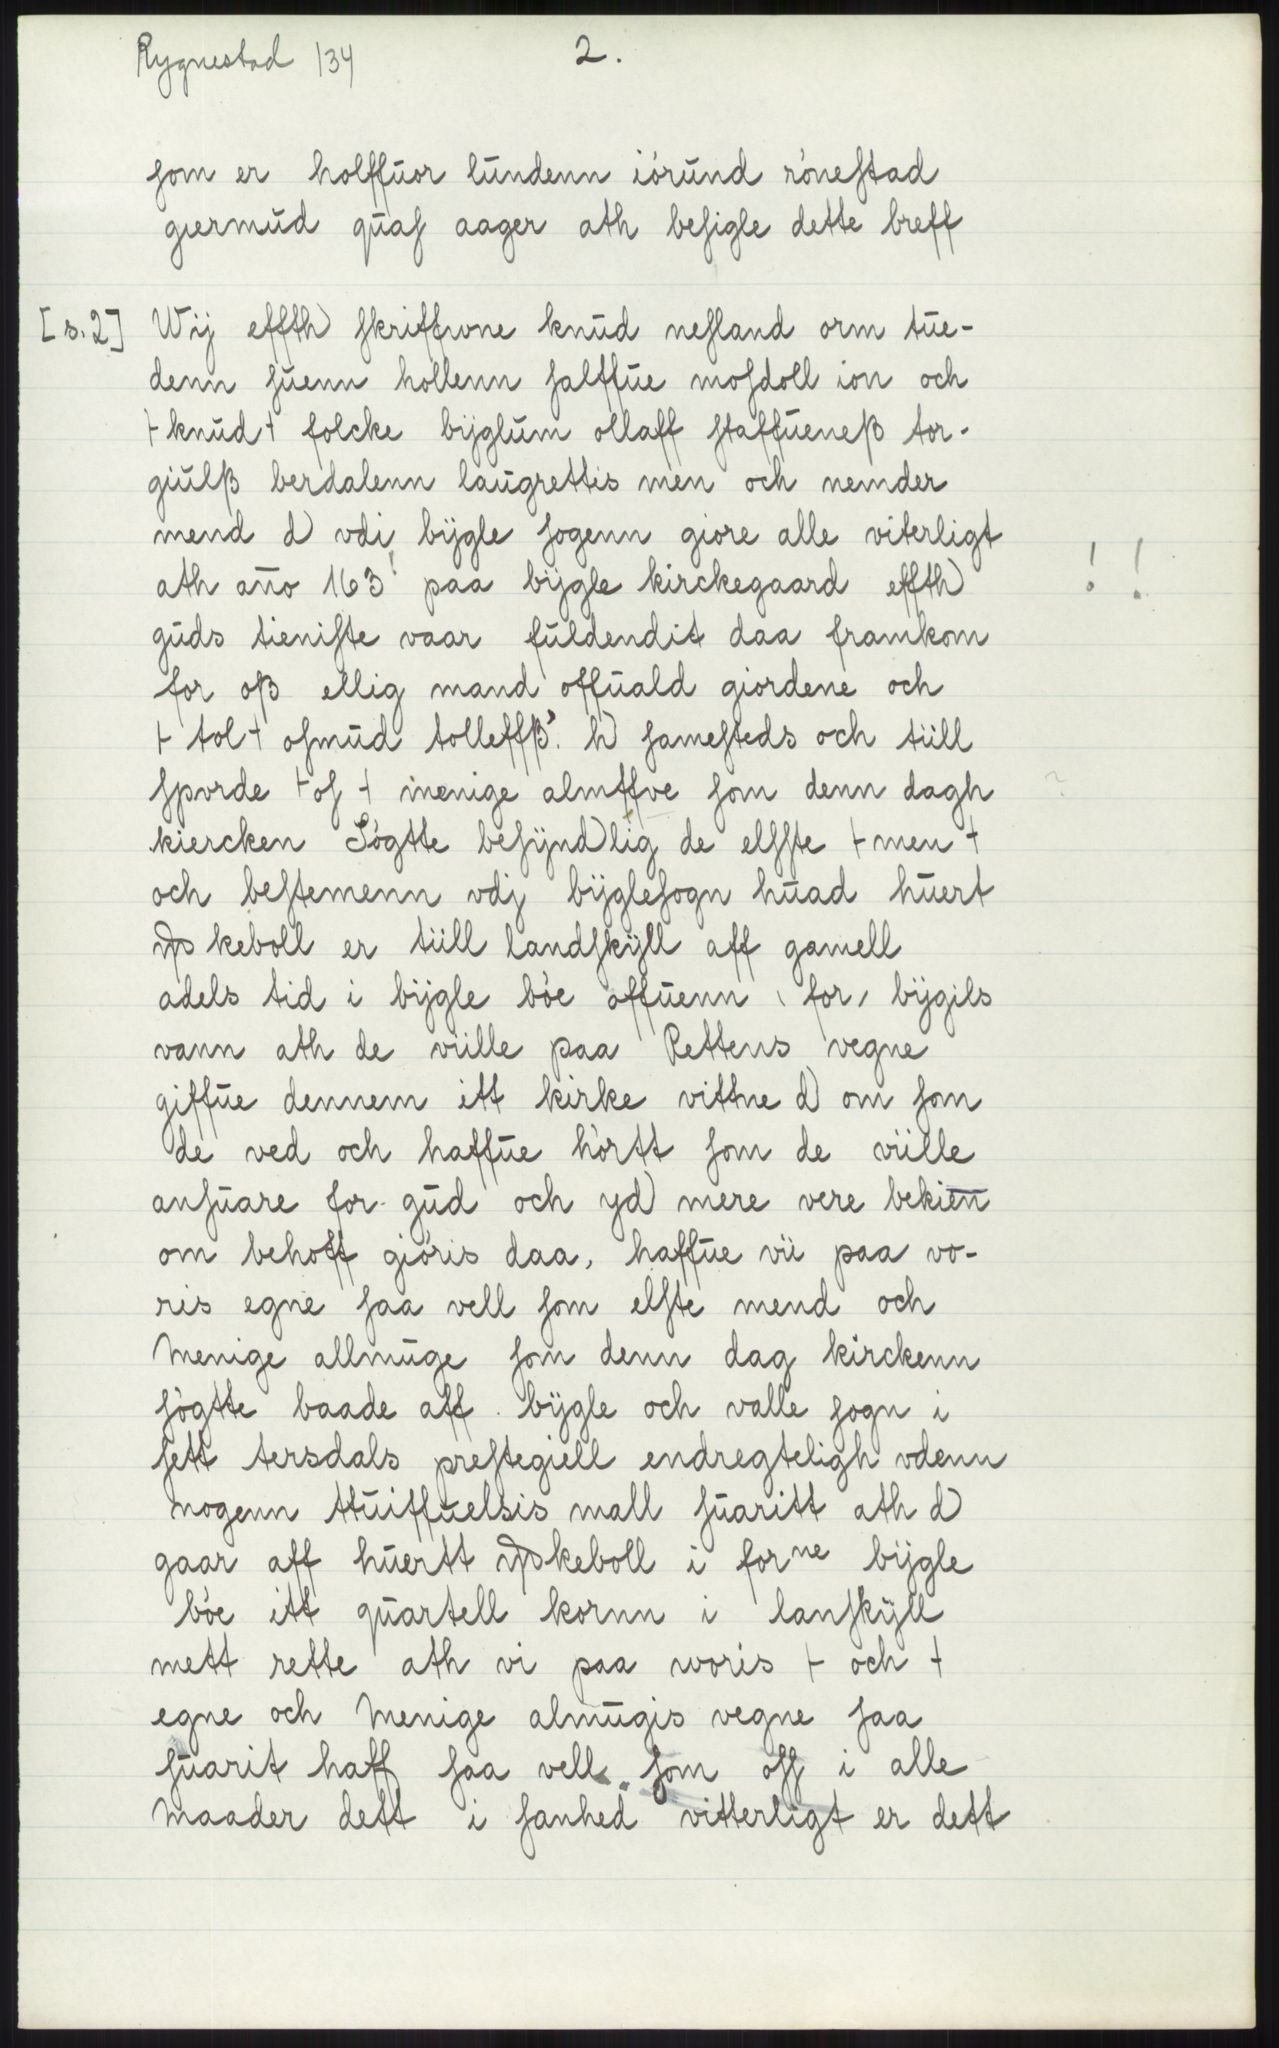 Rygnestad 134
2.
som er holffuor lundenn iórund rónestad
giermud quas aager ath besigle dette breff
[s. 2] Wij effth) skriffwne knud nesland orm tue-
denn suenn hollenn salffue mosdoll ion och
⊢knud⊣ folcke bÿglum ollaff staffueneß tor-
giulß berdalenn laugrettis men och nemder
mend d) vdi bÿgle sogenn giore alle viterligt
ath año 163! paa bÿgle kirckegaard effth) ! !
guds tieniste vaar fuldendit daa framkom
for oß ellig mand offuald giordene och
⊢tol⊣ osmud tolleffß. h) samesteds och tiill
spvrde ⊢os⊣ menige almffve som denn dagh ?
kiercken Sógtte besÿnd)lig de elsste ⊢men⊣
och bestemenn vdj bÿglesogn huad huert
keboll er tiill landskÿll aff gamell
adels tid i bÿgle bóe offuenn for bÿgils
vann ath de viille paa Rettens vegne
giffue dennem itt kirke vittne d) om som
de ved och haffue hórtt som de viille
ansuare for gud och yd) mere vere bekien
om behoff gióris daa, haffue vii paa vo-
ris egne saa vell som elste mend och
Menige allmuge som denn dag kirckenn
sógtte baade aff bÿgle och valle sogn i
sett tersdals prestegiell endregteligh vdenn
nogenn ttuiffuelsis mall suaritt ath d)
gaar aff huertt keboll i forne bÿgle
bóe itt quartell kornn i lanskÿll
mett rette ath vi paa woris ⊢och⊣
egne och Menige almugis vegne saa
suarit haff saa vell som oss i alle
Maader dett i sanhed vitterligt er dett